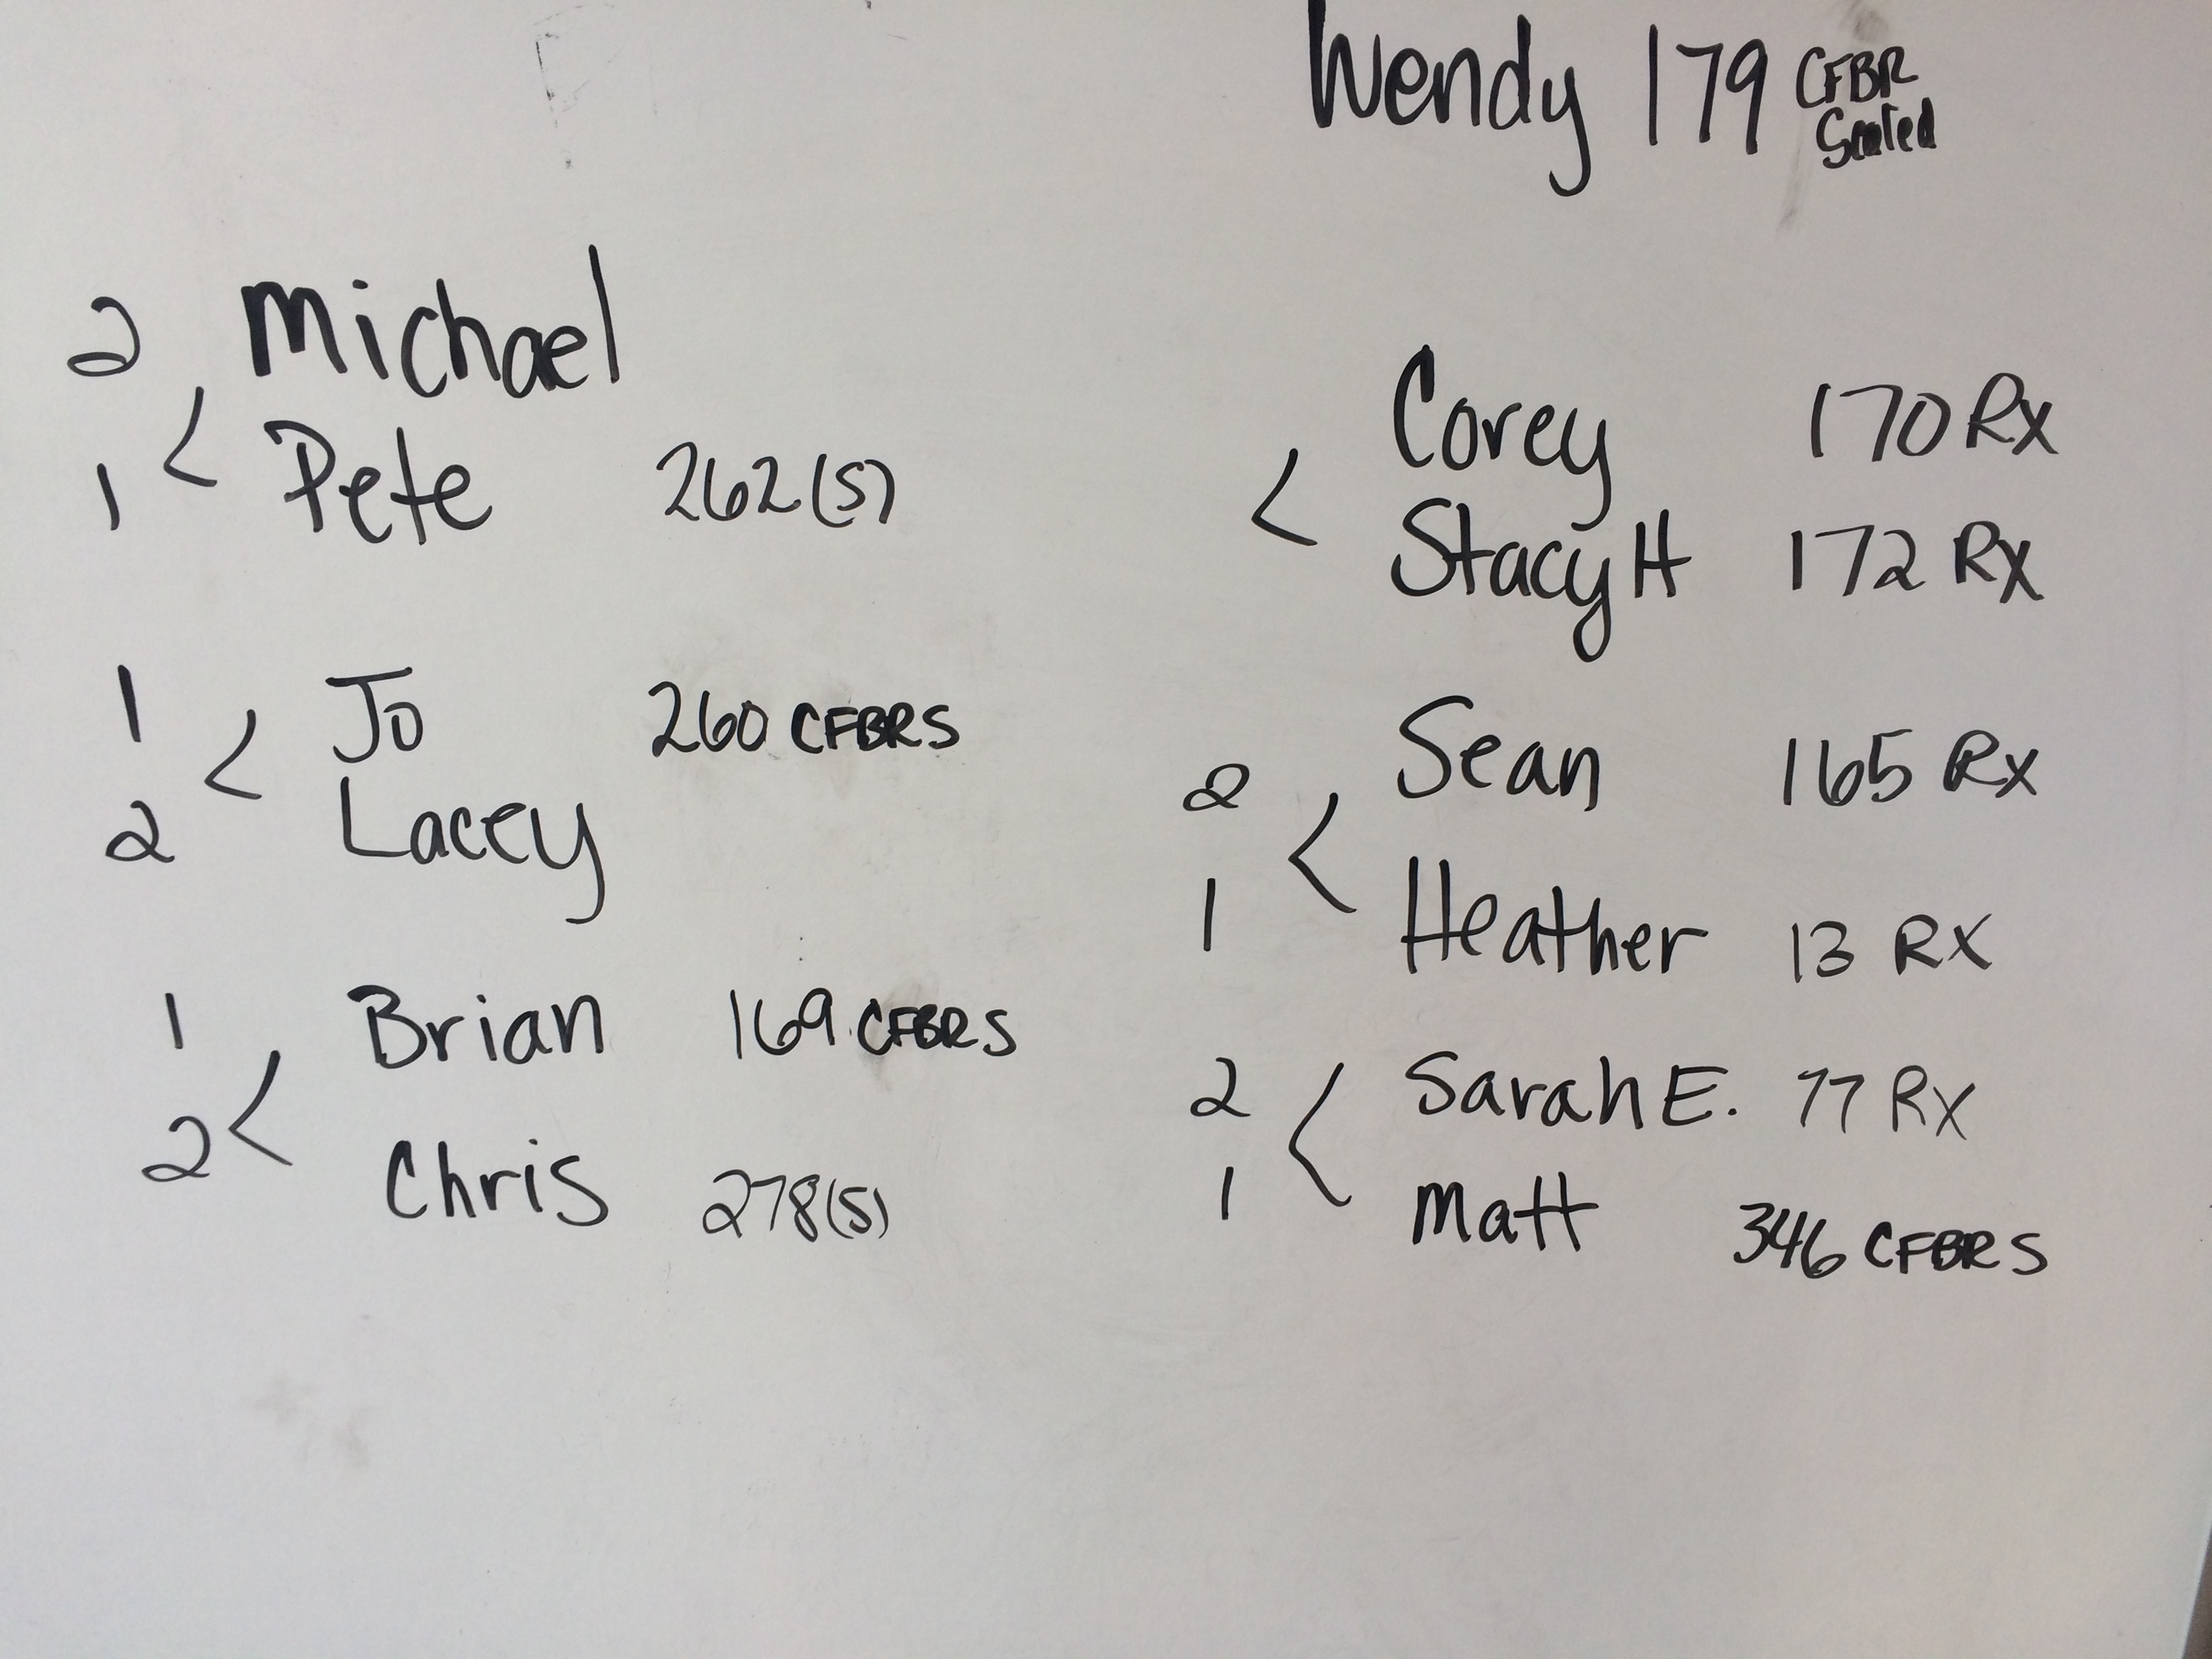 Wendy 179 CFBR
Scaled
2 Michael
1 < Pete 262(S)
1 < Jo 260 CFBRS
2 Lacey
1 Brian 169 CFBRS
2 < Chris 278(S)
< Corey 170 Rx
Stacy H 172 Rx
2 < Sean 165 Rx
1 Heather 13 RX
2 < Sarah E. 77 RX
1 Matt 346 CFBRS